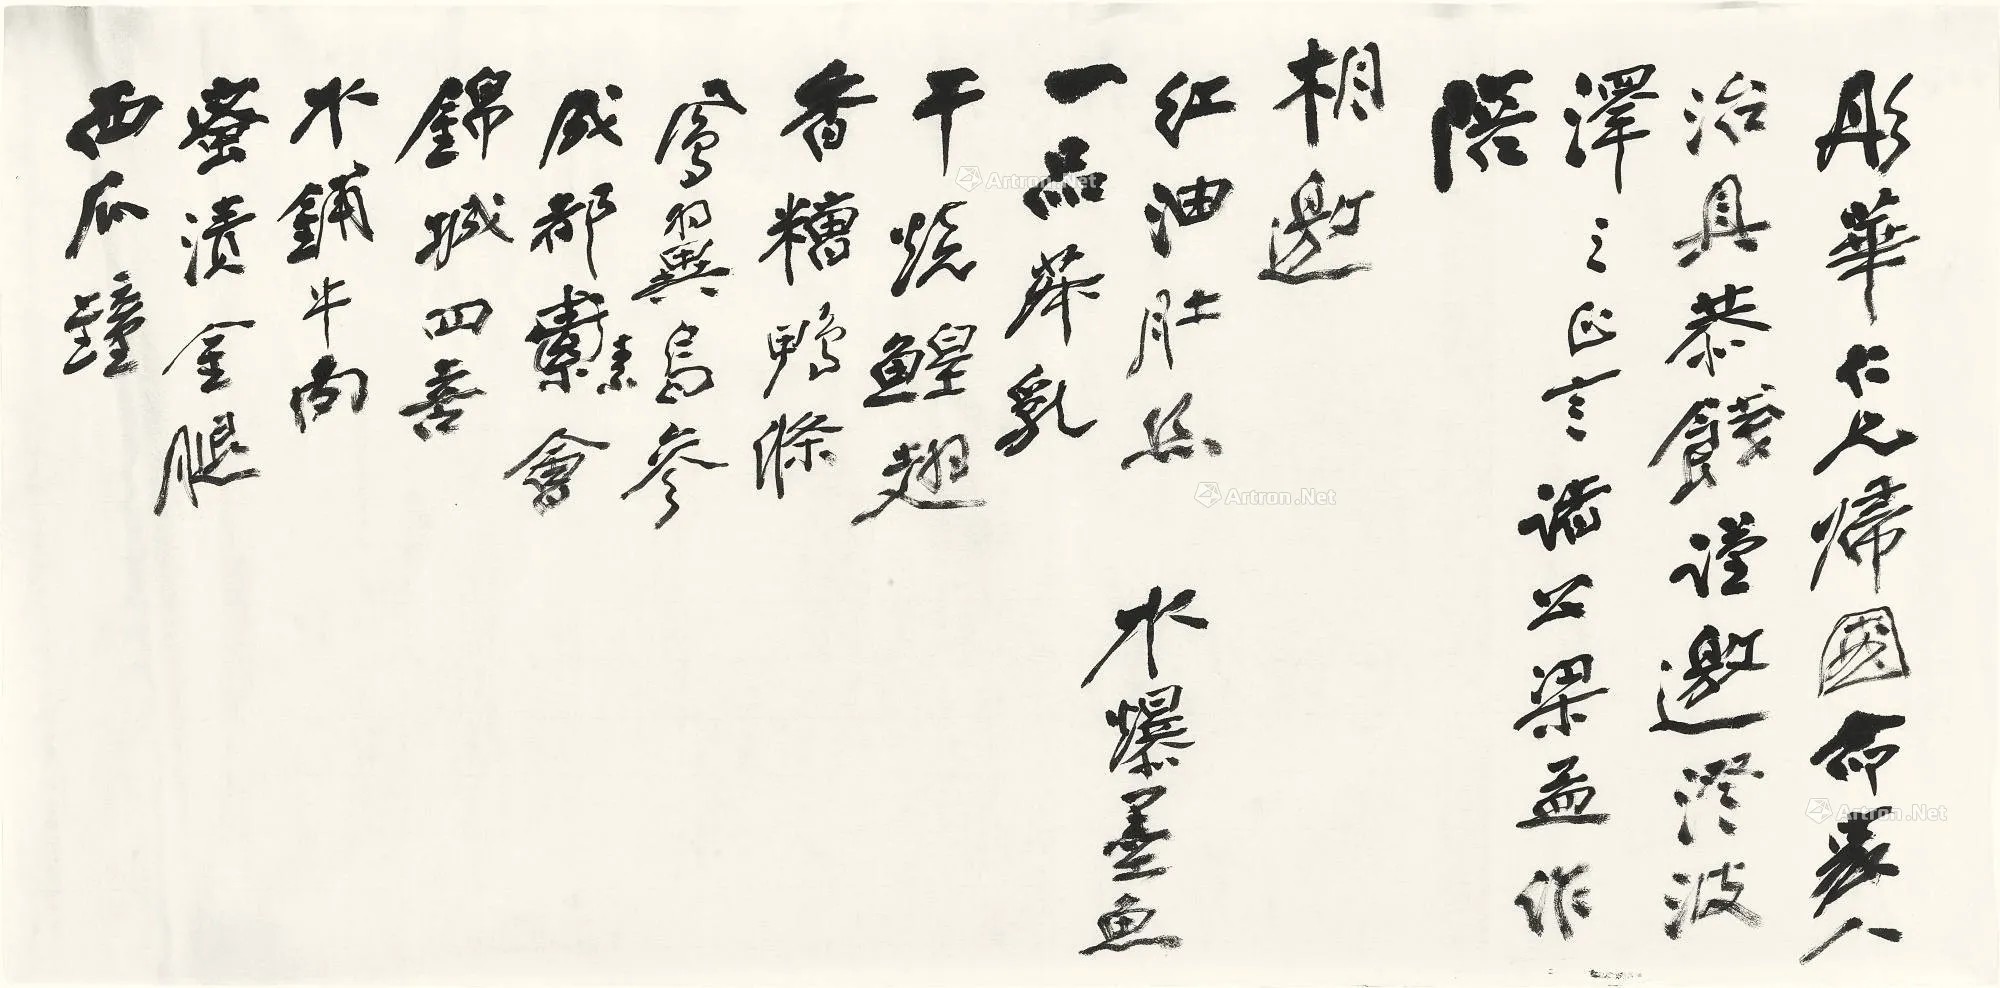 彤華仁兄歸國命家人
治具恭餞謹邀澄波
澤之正言諸公梁並作
陪
相邀
紅油肚絲 水爆墨魚
一品茶乳
干燒鰉翅
香糟鴨條
鳶翼烏參
成都素會
錦城四喜
水鋪牛肉
蜜漬金腿
西瓜鐘
Artron.Net
Artron.Net
Artron.Net